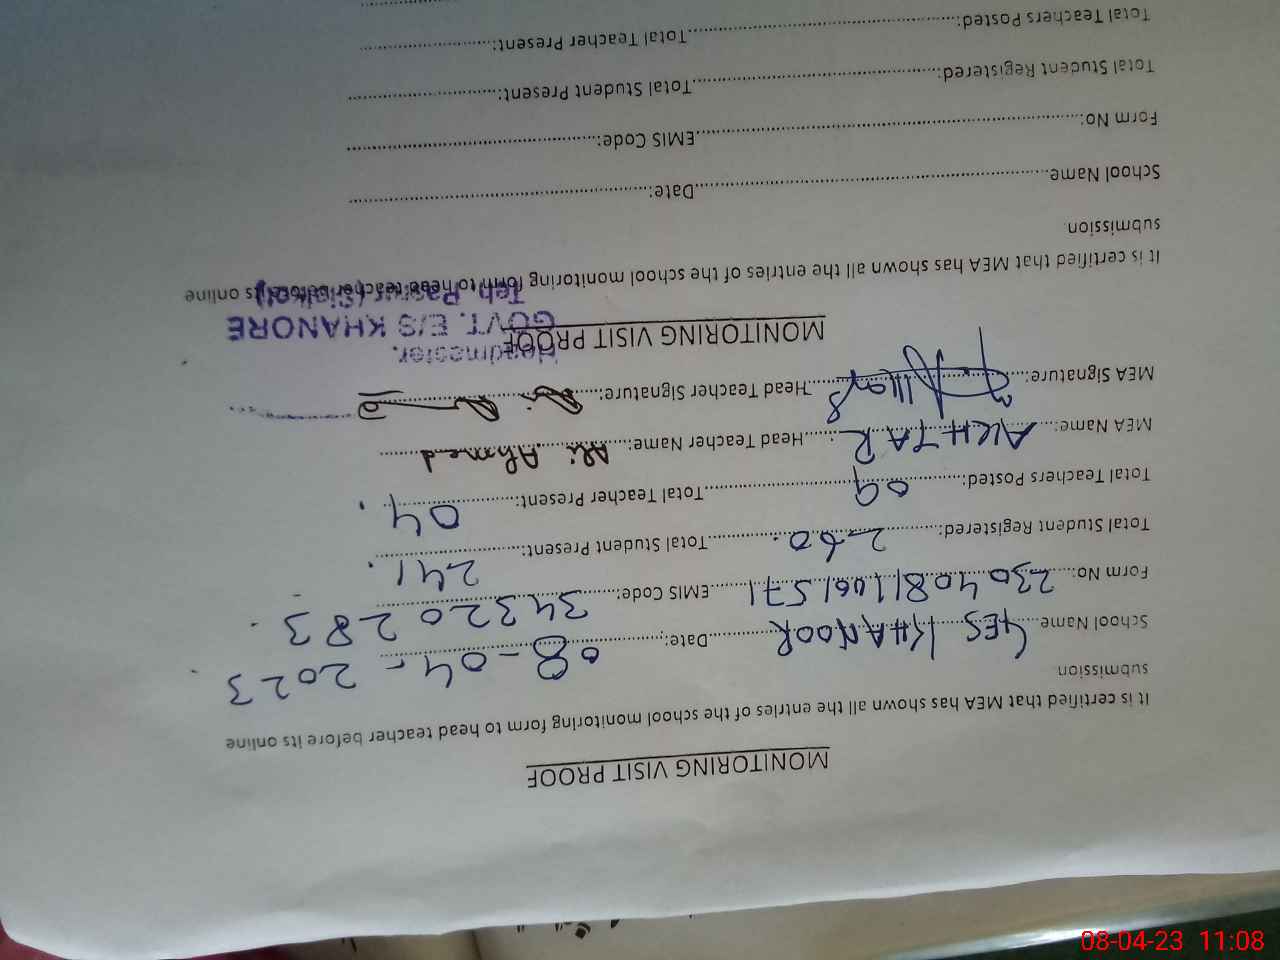 MONITORING VISIT PROOF
It is certified that MEA has shown all the entries of the school monitoring form to head teacher before its online
submission
School Name GES KHANOOR Date: 08-04-2023
Form No: 23040811061571 EMIS Code: 34320283
Total Student Registered: 260 Total Student Present: 241
Total Teachers Posted: 09 Total Teacher Present: 04
MEA Name: AKHTAR Head Teacher Name: Ali Ahmed
MEA Signature: Head Teacher Signature:
Headmaster.
GOVT. E/S KHANORE
Teh. Pasrur (Sialkot)
MONITORING VISIT PROOF
It is certified that MEA has shown all the entries of the school monitoring form to head teacher before its online
submission
School Name Date:
Form No: EMIS Code:
Total Student Registered: Total Student Present:
Total Teachers Posted: Total Teacher Present:
08-04-23 11:08